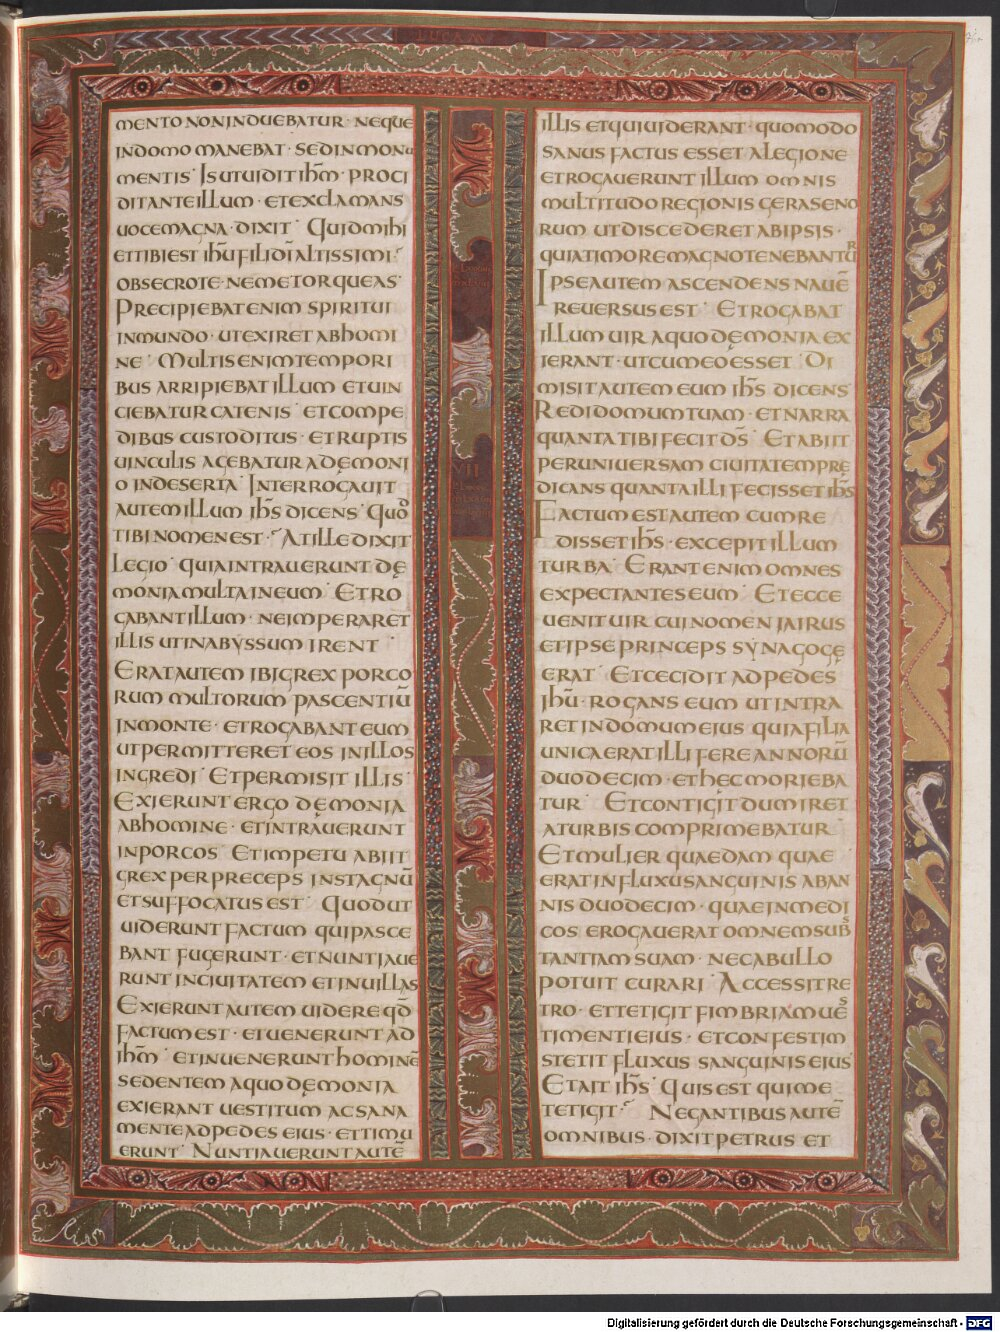 LUCAM
MENTO NON INDUEBATUR · NEQUE
IN DOMO MANEBAT · SED IN MONU
MENTIS · IS UT UIDIT IHM̅ · PROCI
DIT ANTE ILLUM · ET EXCLAMANS
UOCE MAGNA · DIXIT · QUID MIHI
ET TIBI EST IHU̅ FILI DI̅ ALTISSIMI ·
OBSECRO TE · NE ME TORQUEAS ·
PRECIPIEBAT ENIM SPIRITUI
INMUNDO · UT EXIRET AB HOMI
NE · MULTIS ENIM TEMPORI
BUS ARRIPIEBAT ILLUM ET UIN
CIEBATUR CATENIS · ET COMPE
DIBUS CUSTODITUS · ET RUPTIS
UINCULIS AGEBATUR A DĘMONI
O IN DESERTA · INTERROGAUIT
AUTEM ILLUM IHS̅ DICENS · QUOD
TIBI NOMEN EST · AT ILLE DIXIT
LEGIO · QUIA INTRAUERUNT DĘ
MONIA MULTA IN EUM · ET RO
GABANT ILLUM · NE IMPERARET
ILLIS UT IN ABYSSUM IRENT ·
ERAT AUTEM IBI GREX PORCO
RUM MULTORUM PASCENTIU̅
IN MONTE · ET ROGABANT EUM
UT PERMITTERET EOS IN ILLOS
INGREDI · ET PERMISIT ILLIS ·
EXIERUNT ERGO DĘMONIA
AB HOMINE · ET INTRAUERUNT
IN PORCOS · ET IMPETU ABIIT
GREX PER PRECEPS IN STAGNU̅
ET SUFFOCATUS EST · QUOD UT
UIDERUNT FACTUM QUI PASCE
BANT FUGERUNT · ET NUNTIAUE
RUNT IN CIUITATEM ET IN UILLAS
EXIERUNT AUTEM UIDERE QD̅
FACTUM EST · ET UENERUNT AD
IHM̅ · ET INUENERUNT HOMINE̅
SEDENTEM A QUO DĘMONIA
EXIERANT UESTITUM AC SANA
MENTE AD PEDES EIUS · ET TIMU
ERUNT · NUNTIAUERUNT AUTE̅
VII
ILLIS ET QUI UIDERANT · QUOMODO
SANUS FACTUS ESSET A LEGIONE
ET ROGAUERUNT ILLUM OMNIS
MULTITUDO REGIONIS GERASENO
RUM UT DISCEDERET AB IPSIS ·
QUIA TIMORE MAGNO TENEBANTUR
IPSE AUTEM ASCENDENS NAUE̅
REUERSUS EST · ET ROGABAT
ILLUM UIR A QUO DĘMONIA EX
IERANT · UT CUM EO ESSET · DI
MISIT AUTEM EUM IHS̅ DICENS
REDI DOMUM TUAM · ET NARRA
QUANTA TIBI FECIT DS̅ · ET ABIIT
PER UNIUERSAM CIUITATEM PRĘ
DICANS QUANTA ILLI FECISSET IHS̅
FACTUM EST AUTEM CUM RE
DISSET IHS̅ · EXCEPIT ILLUM
TURBA · ERANT ENIM OMNES
EXPECTANTES EUM · ET ECCE
UENIT UIR CUI NOMEN IAIRUS
ET IPSE PRINCEPS SYNAGOGĘ
ERAT · ET CECIDIT AD PEDES
IHU̅ · ROGANS EUM UT INTRA
RET IN DOMUM EIUS QUIA FILIA
UNICA ERAT ILLI FERE ANNORU̅
DUODECIM · ET HEC MORIEBA
TUR · ET CONTIGIT DUM IRET
A TURBIS COMPRIMEBATUR ·
ET MULIER QUAEDAM QUAE
ERAT IN FLUXU SANGUINIS AB AN
NIS DUODECIM · QUAE IN MEDI
COS EROGAUERAT OMNEM SUBS
TANTIAM SUAM · NEC AB ULLO
POTUIT CURARI · ACCESSIT RE
TRO · ET TETIGIT FIMBRIAM UES
TIMENTI EIUS · ET CONFESTIM
STETIT FLUXUS SANGUINIS EIUS
ET AIT IHS̅ · QUIS EST QUI ME
TETIGIT · NEGANTIBUS AUTE̅
OMNIBUS · DIXIT PETRUS ET
Digitalisierung gefördert durch die Deutsche Forschungsgemeinschaft - DFG